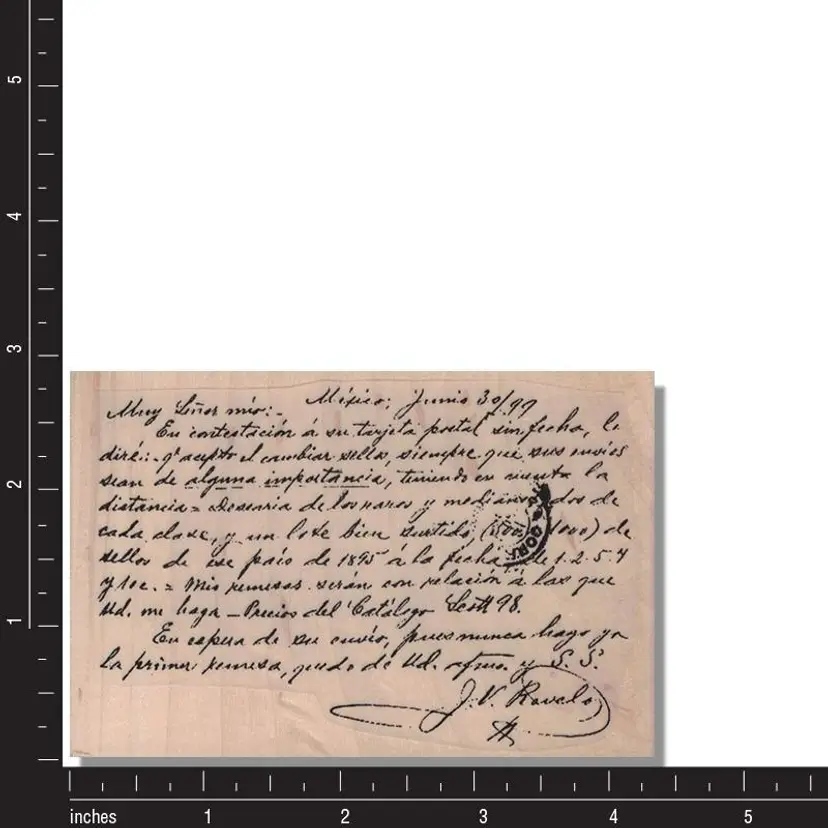 México; Junio 30/99
Muy Señor mío:-
En contestación á su tarjeta postal sin fecha, le
diré:- qe acepto el cambiar sellos, siempre que sus envíos
sean de alguna importancia, teniendo en cuenta la
distancia = Desearía de los raros y medianos dos de
cada clase, y un lote bien surtido, (500 1000) de
sellos de ese país de 1895 á la fecha de 1.2.5.7
y 10c. = Mis remesas serán con relación á las que
Ud. me haga - Precios del Catálogo Scott 98.
En espera de su envío, pues nunca hago yo
la primer remesa, quedo de Ud. afmo. y S. S.
J. V. Ravelo
5
4
3
2
1
inches 1 2 3 4 5